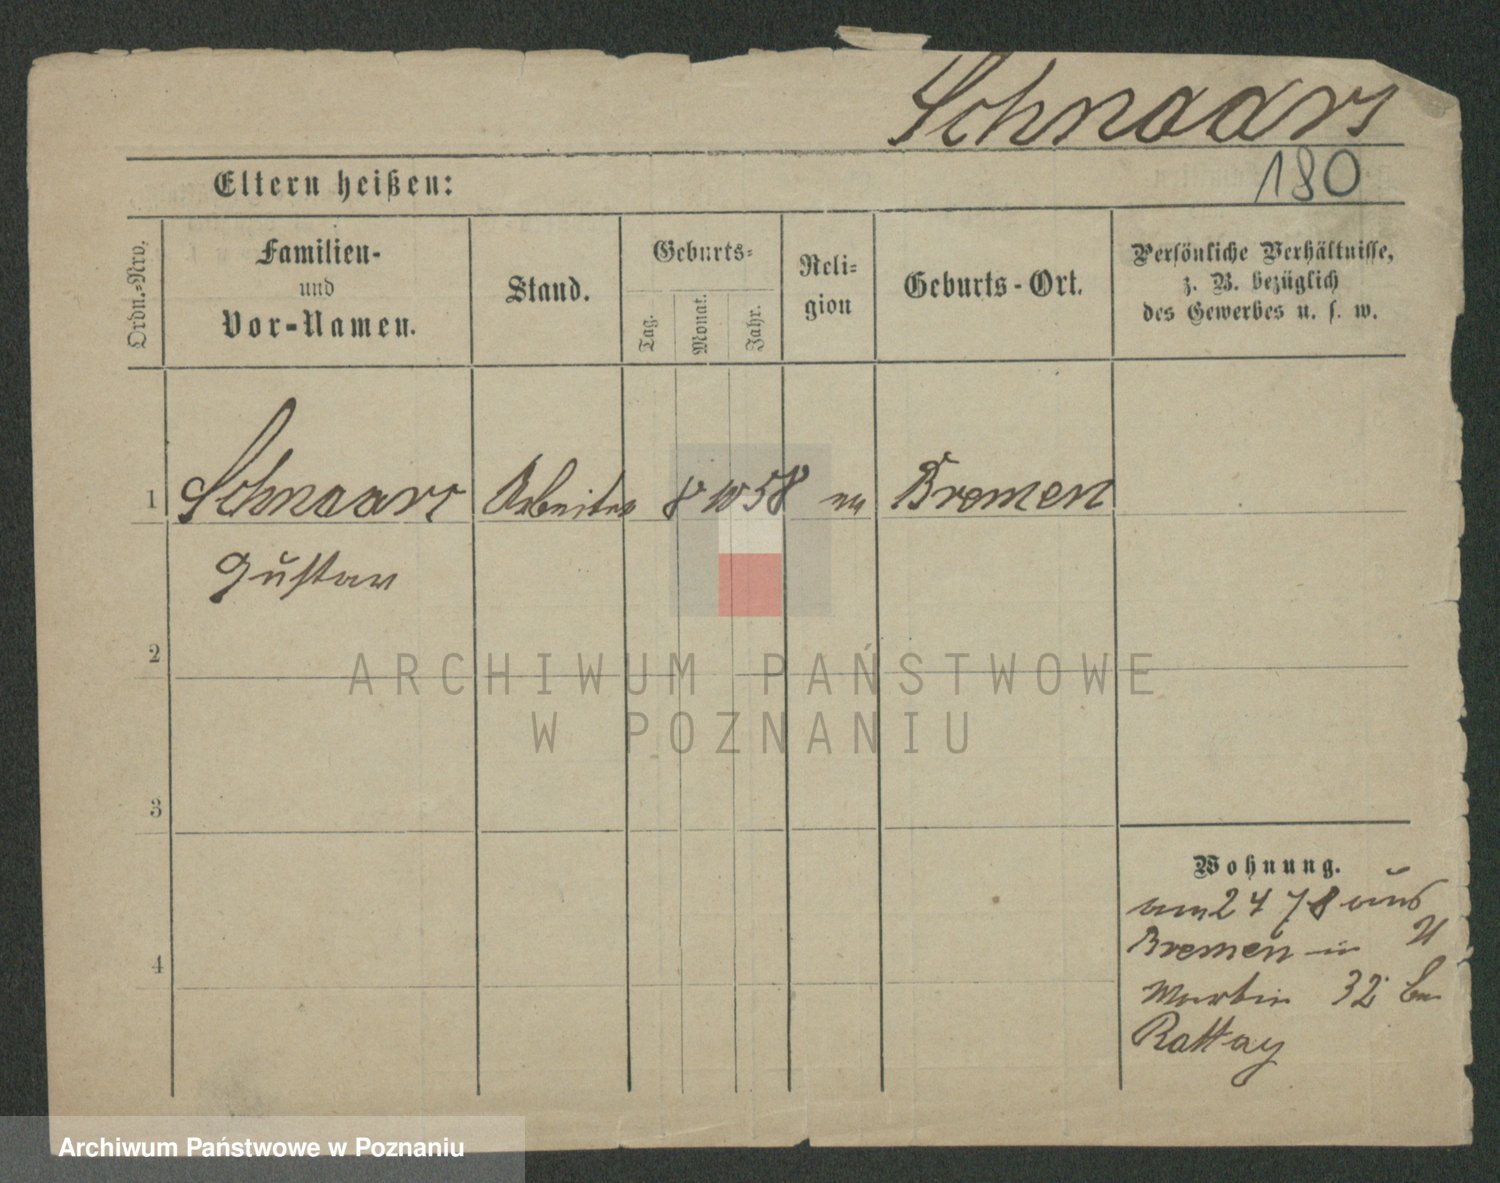 Schnaars
180
Eltern heißen:
Ordn.-Nro.
Familien-
und
Vor-Namen.
Stand.
Geburts-
Tag.
Monat.
Jahr.
Reli-
gion
Geburts-Ort.
Persönliche Verhältnisse,
z. B. bezüglich
des Gewerbes u. s. w.
1 Schnaars Arbeiter 8 10 58 Bremen
Gustav
2
3
4
Wohnung.
am 24 78 aus
Bremen in
Martin 32 bei
Rattay
ARCHIWUM PAŃSTWOWE
W POZNANIU
Archiwum Państwowe w Poznaniu